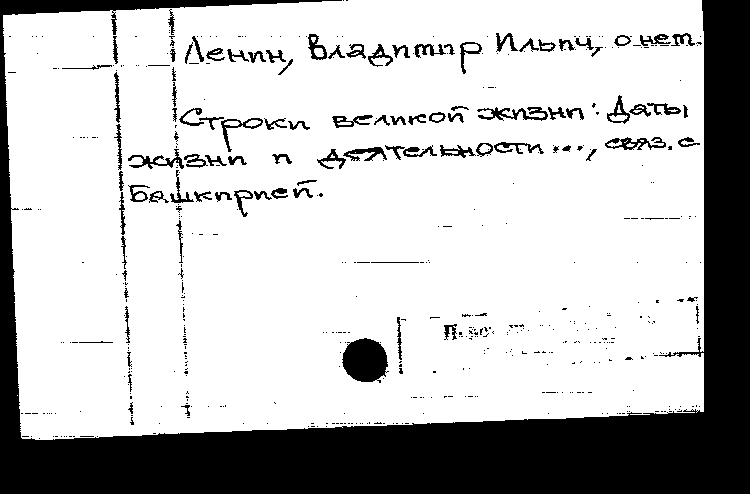 Ленин, Владимир Ильич, о нем.
Строки великой жизни: Даты
жизни и деятельности..., связ. с
Башкирией.